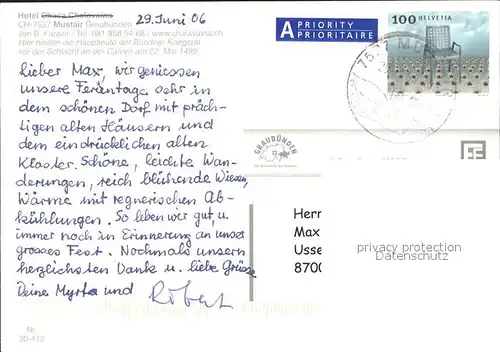 Hotel Chasa Chalavaina
29. Juni 06
CH-7537 Müstair Graubünden
Jon B. Fasser / Tel 081 858 54 68 / www.chalavaina.ch
Hier hielten die Hauptleute der Bündner Kriegsrat
vor der Schlacht an der Calven am 22. Mai 1499.
A PRIORITY
PRIORITAIRE
100 HELVETIA
7537 MÜ
Lieber Max, wir geniessen
unsere Ferientage sehr in
dem schönen Dorf mit präch-
tigen alten Häusern und
dem eindrücklichen alten
Kloster. Schöne, leichte Wan-
derungen, reich blühende Wiesen,
Wärme mit regnerischen Ab-
kühlungen. So leben wir gut, u.
immer noch in Erinnerung an unser
grosses Fest. Nochmals unsern
herzlichsten Danke u. liebe Grüsse
Deine Myrta und Robert
GRAUBÜNDEN
Herr
Max
Usse
8700
privacy protection
watermark
Nr.
90-412